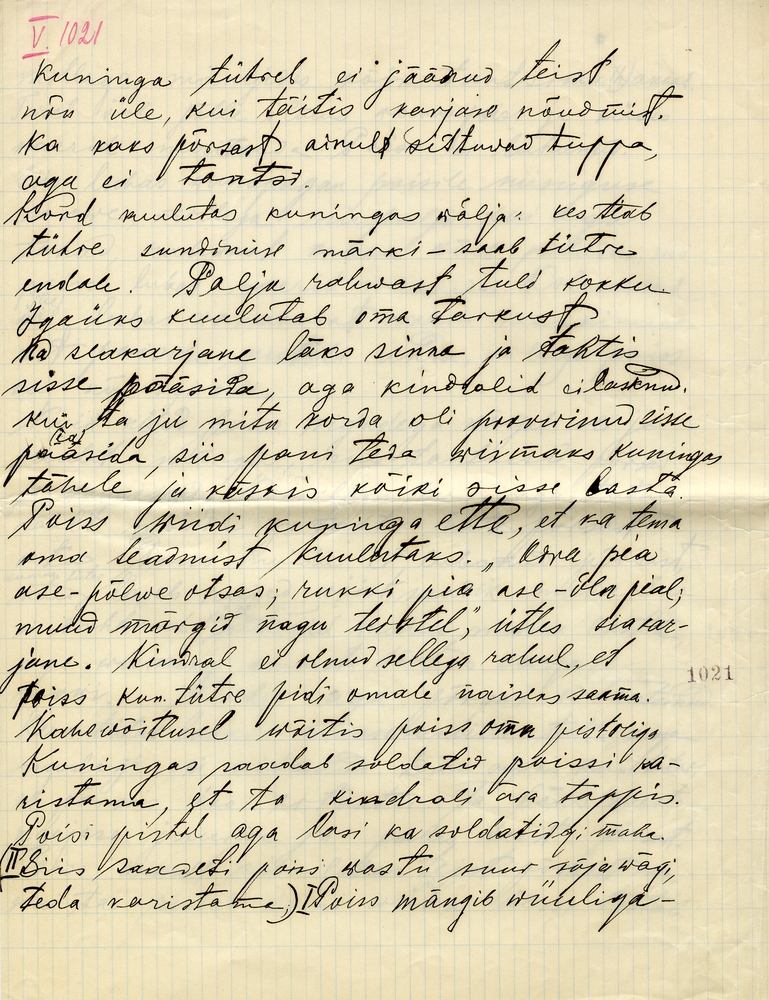 V. 1021
Kuninga tütrel ei jäänud teist
nõu üle, kui täitis karjase nõudmist.
Ka kaks põrsast ainult sittuvad tuppa,
aga ei tantsi.
Kord kuulutas kuningas wälja: kes teab
tütre sundimise märki – saab tütre
endale. Palju rahwast tuli kokku
Igaüks kuulutab oma tarkust,
Ka seakarjane läks sinna ja tahtis
sisse pääsida, aga kindralid ei lasknud.
Kui ta ju mitu korda oli proowinud sisse
pääsida, siis pani teda wiimaks kuningas
tähele ja käskis kõiki sisse lasta.
Poiss wiidi kuninga ette, et ka tema
oma teadmist kuulutaks. „Odra pia
ase-põlwe otsas; rukki pia ase – õla pial;
muud märgid nagu teistel," ütles seakar-
jane. Kindral ei olnud sellega rahul, et
poiss kun. tütre pidi omale naiseks saama.
Kahewõitlusel wõitis poiss oma pistoliga
Kuningas saadab soldatid poissi ka-
ristama, et ta kindrali ära tappis.
Poisi pistol aga lasi ka soldatidgi maha.
(II Siis saadeti poisi wastu suur sõjawägi,
teda karistama.) I Poiss mängib wiiuliga –
1021